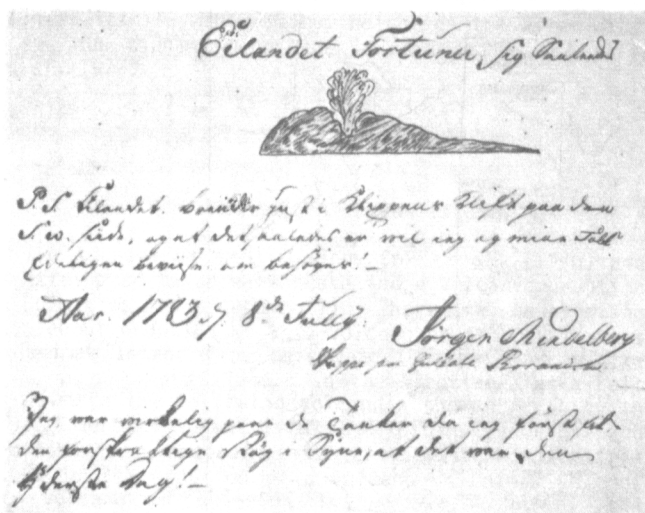 Eilandet Fortuner sig Saaledes
P.S. Eilandet brender just i Klippens Klift paa den
S.W. side, og at det saaledes er vil jeg og mine Folk
Edeligen beviise om besøges! –
Aar. 1783 d. 8de Jully. Jørgen Mindelberg
Jeg var virkelig paa de Tanker da jeg først fik
den forskrækkelige Røg i Syne, at det var den
yderste Dag! –